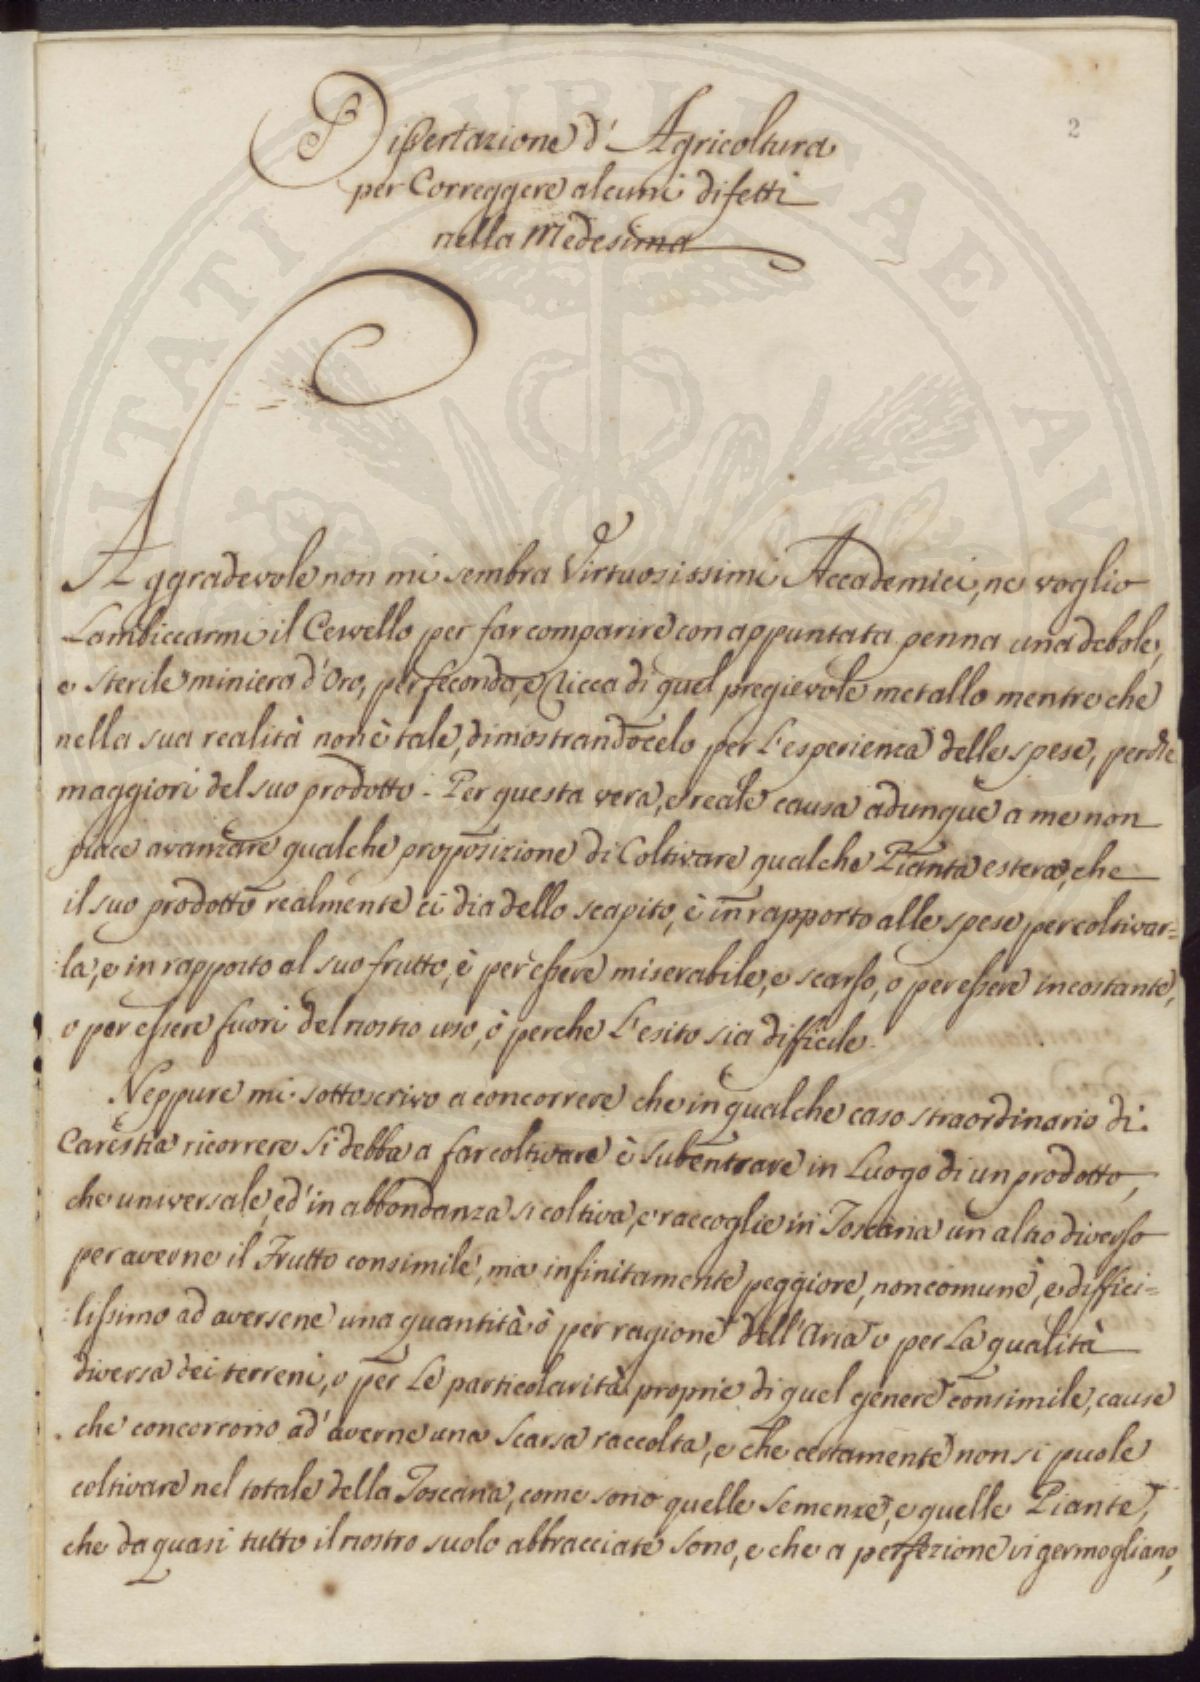 2
Dissertazione d'Agricoltura
per Correggere alcuni difetti
nella Medesima
Aggradevole non mi sembra Virtuosissimi Accademici, ne voglio
Lambiccarmi il Cervello per far comparire con appuntata penna una debole,
e sterile miniera d'Oro, per feconda, e Ricca di quel pregievole metallo mentre che
nella sua realità non è tale, dimostrandocelo per L'esperienza delle spese, perdie
maggiori del suo prodotto. Per questa vera, e reale causa adunque a me non
piace avanzare qualche proposizione di Coltivare qualche Pianta estera, che
il suo prodotto realmente ci dia dello scapito, è in rapporto alle spese per coltivar=
:la, e in rapporto al suo frutto, è per essere miserabile, e scarso, o per essere incostante,
o per essere fuori del nostro uso, ò perche L'esito sia difficile.
Neppure mi sottoscrivo a concorrere che in qualche caso straordinario di
Carestia ricorrere si debba a far coltivare è subentrare in Luogo di un prodotto,
che universale, ed' in abbondanza si coltiva, e raccoglie in Toscana un altro diverso
per averne il Frutto consimile, ma infinitamente peggiore, non comune, e diffici=
:lissimo ad aversene una quantità ò per ragione dell'Aria o per La qualità
diversa dei terreni, o per Le particolarità proprie di quel genere consimile, cause
che concorrono ad' averne una scarsa raccolta, e che certamente non si puole
coltivare nel totale della Toscana, come sono quelle Semenze, e quelle Piante,
che da quasi tutto il nostro suolo abbracciate sono, e che a perfezione vi germogliano,